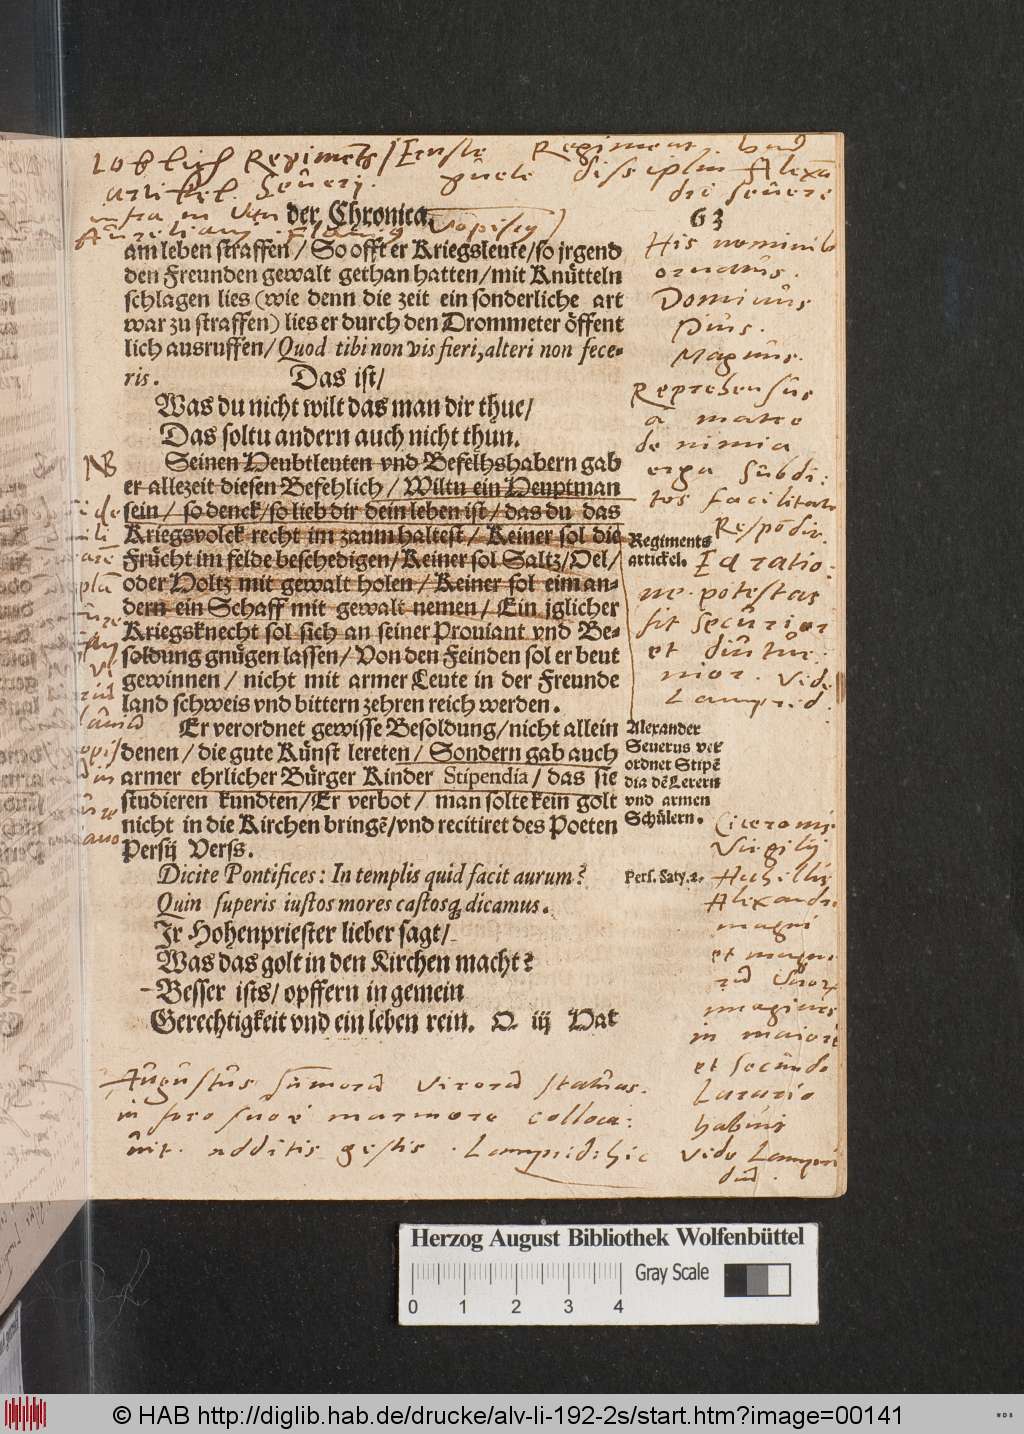 Loblich Regiments
artickel Severj.
Ernste Regiment vnd
guete disciplin Alexā
dri Severi
der Chronica. 63
am leben straffen / So offt er Kriegsleute / so jrgend
den Freunden gewalt gethan hatten / mit Knütteln
schlagen lies (wie denn die zeit ein sonderliche art
war zu straffen) lies er durch den Drommeter öffent
lich ausruffen / Quod tibi non vis fieri, alteri non fece-
ris. Das ist /
Was du nicht wilt das man dir thue /
Das soltu andern auch nicht thun.
Seinen Heubtleuten vnd Befelhshabern gab
er allezeit diesen Befehlich / Wiltu ein Heuptman
sein / so denck / so lieb dir dein leben ist / das du das
Kriegsvolck recht im zaum haltest / Keiner sol die
Frücht im felde beschedigen / Keiner sol Saltz / Oel /
oder Holtz mit gewalt holen / Keiner sol eim an-
dern ein Schaff mit gewalt nemen / Ein jglicher
Kriegsknecht sol sich an seiner Prouiant vnd Be-
soldung gnügen lassen / Von den Feinden sol er beut
gewinnen / nicht mit armer Leute in der Freunde
land schweis vnd bittern zehren reich werden.
Er verordnet gewisse Besoldung / nicht allein
denen / die gute Künst lereten / Sondern gab auch
armer ehrlicher Bürger Kinder Stipendia / das sie
studieren kundten / Er verbot / man solte kein golt
nicht in die Kirchen bringē / vnd recitiret des Poeten
Persij Verss.
Dicite Pontifices: In templis quid facit aurum?
Quin superis iustos mores castosq; dicamus.
Jr Hohenpriester lieber sagt /
Was das golt in den Kirchen macht?
Besser ists / opffern in gemein
Gerechtigkeit vnd ein leben rein. O iij Hat
His nominib
ornatus.
Dominus
Pius.
Magnus.
Reprehensus
a matre
de nimia
erga subdi:
tos facilitate
Respōdit.
Regiments
artickel.
Ea ratio:
ne potestas
sit securior
et diutur:
nior. Vide
Lamprid.
Alexander
Seuerus ver
ordnet Stipē
dia dē Lerern
vnd armen
Schülern.
Pers. Saty. 2.
Ciceronis
Virgilij
Achillis
Alexandri
magni
et magno
rū viror
imagines
in maiore
et secundo
Larario
habuit
Vide Lampri
diū.
NB
Augustus sūmorū virorū statuas
in foro suo è marmore colloca:
uit. additis gestis. Lamprid. hic
Herzog August Bibliothek Wolfenbüttel
0 1 2 3 4 Gray Scale
© HAB http://diglib.hab.de/drucke/alv-li-192-2s/start.htm?image=00141